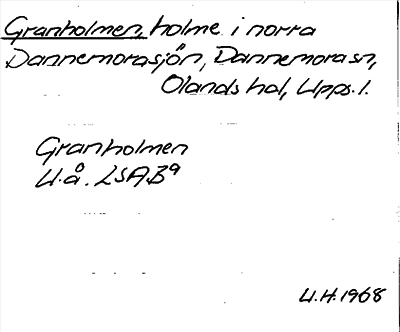 Granholmen, holme i norra
Dannemorasjön, Dannemora sn,
Olands hd, Upps. l.
Granholmen
U.å. LSAB9
U.H. 1968